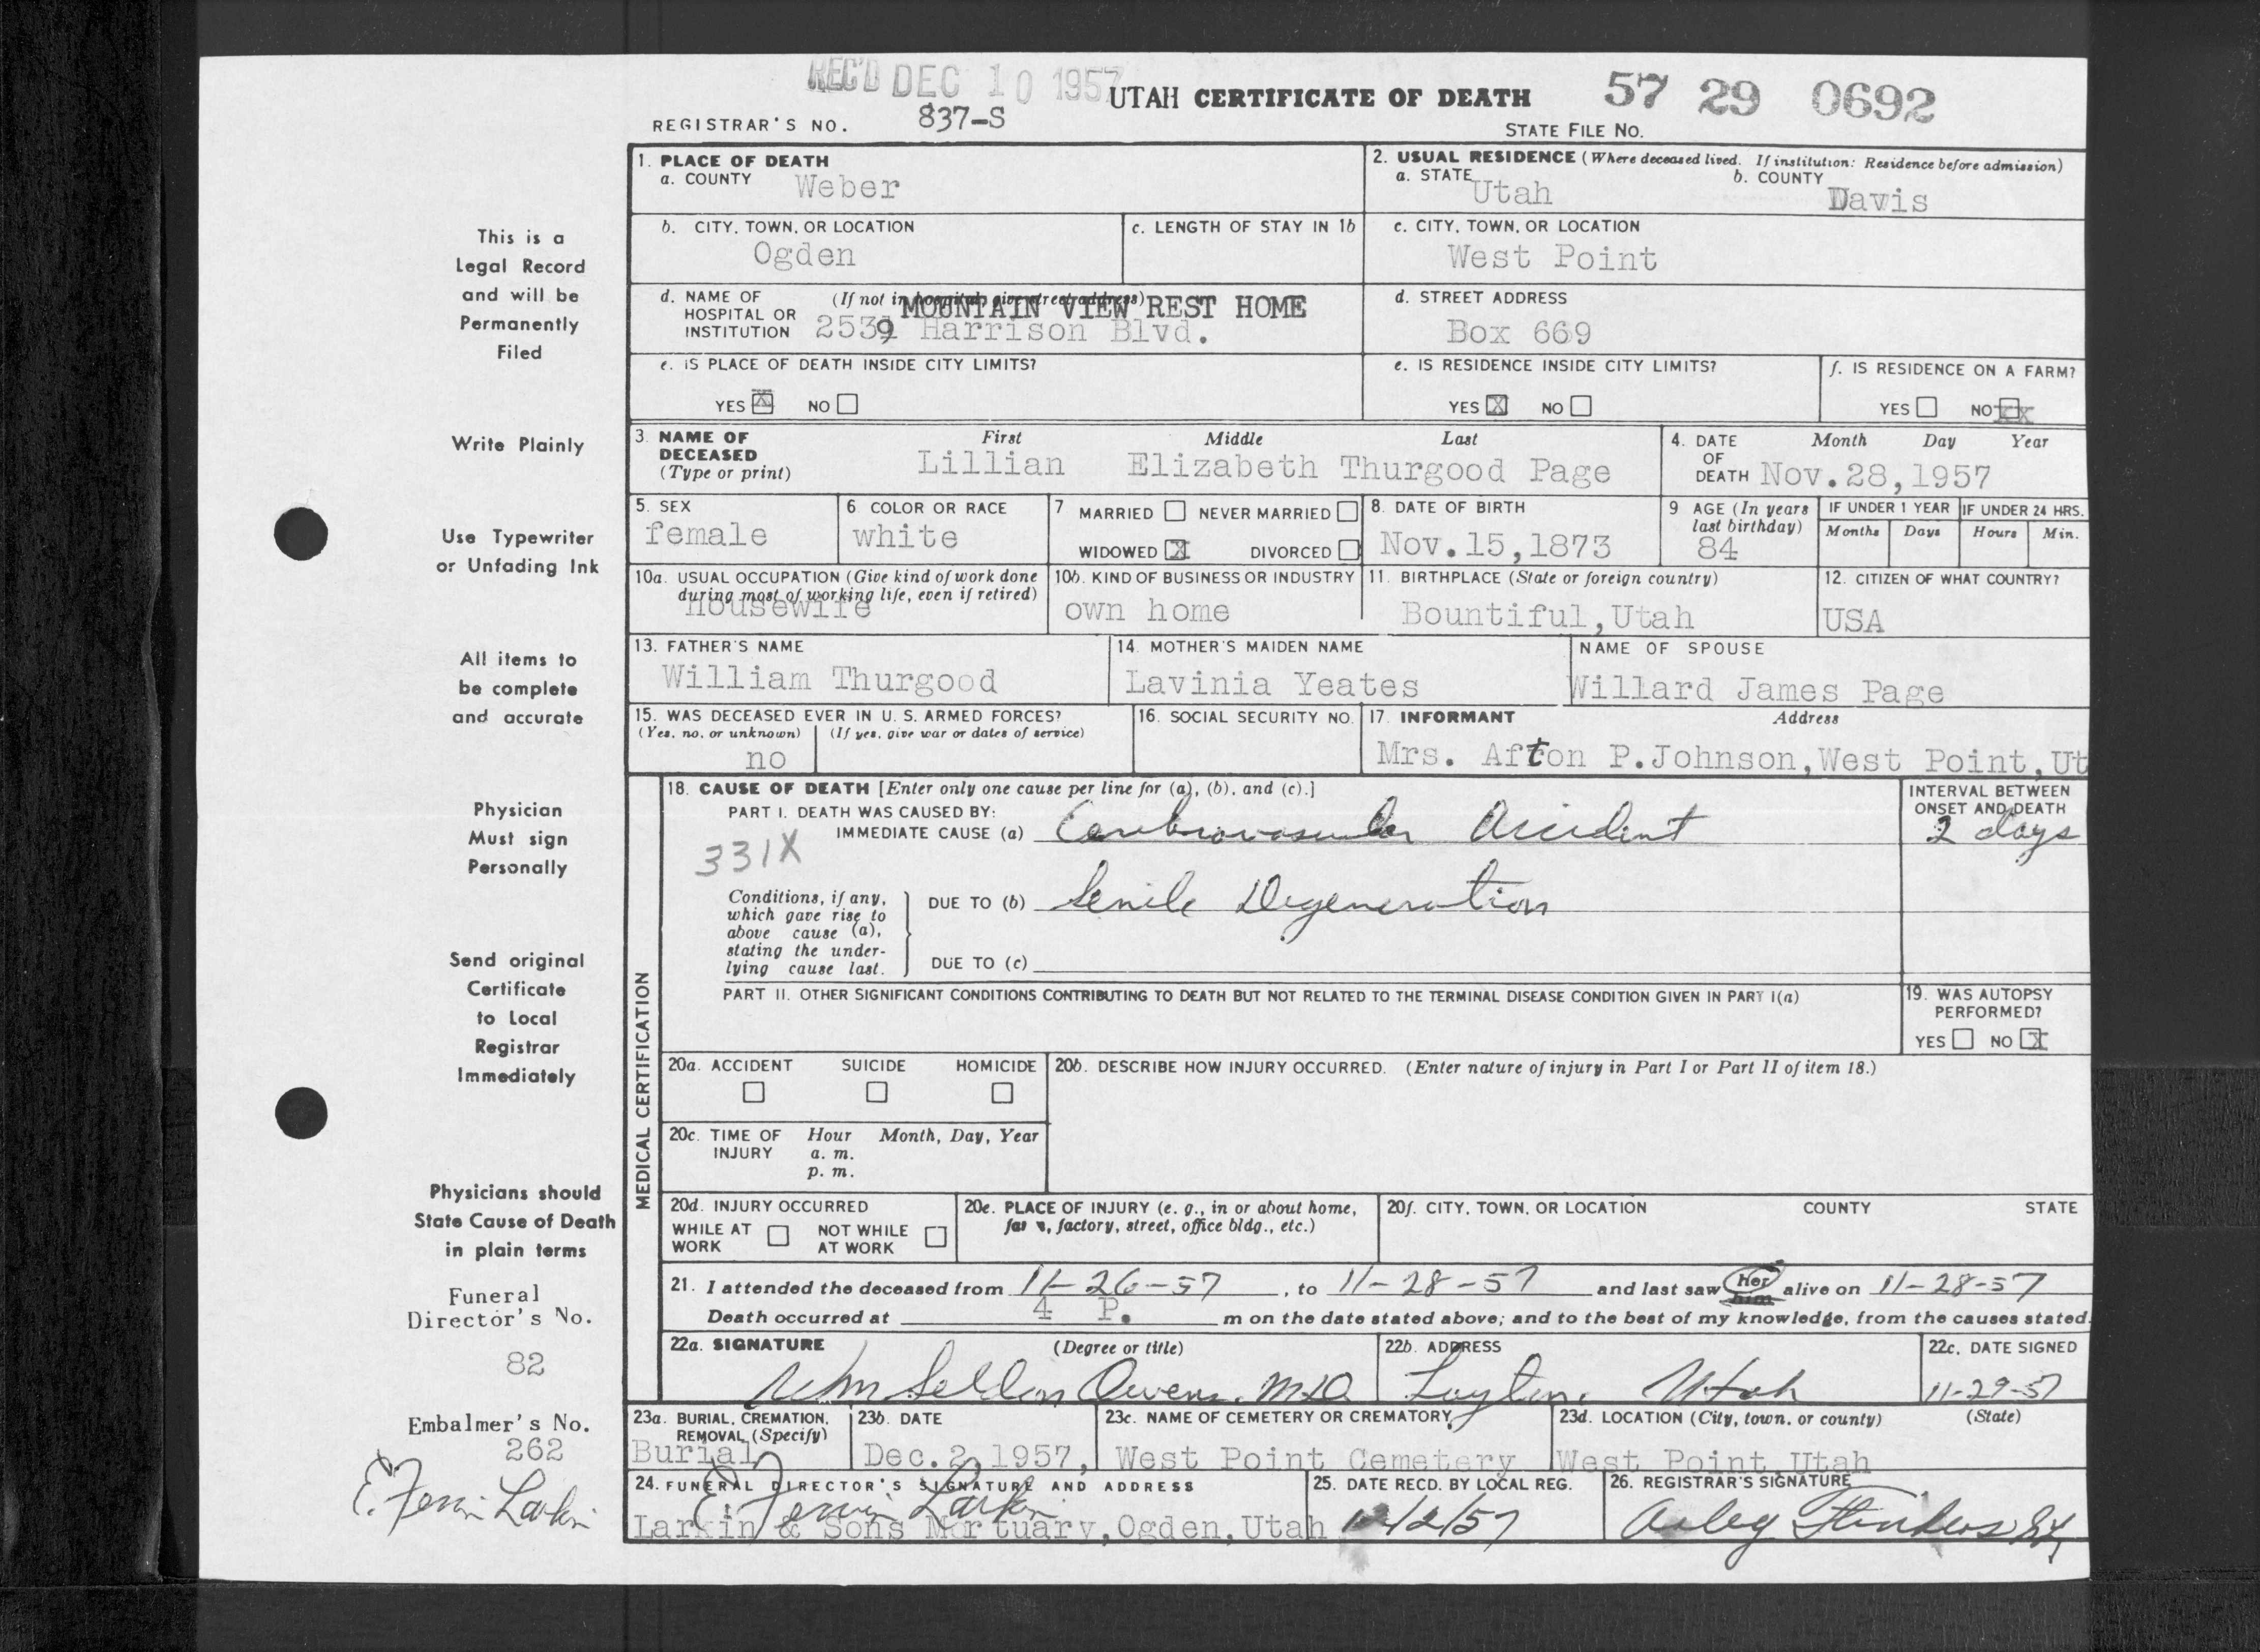 REC'D DEC 10 1957
UTAH CERTIFICATE OF DEATH
57 29 0692
REGISTRAR'S NO. 837-S
STATE FILE NO.
This is a
Legal Record
and will be
Permanently
Filed
Write Plainly
Use Typewriter
or Unfading Ink
All items to
be complete
and accurate
Physician
Must sign
Personally
Send original
Certificate
to Local
Registrar
Immediately
Physicians should
State Cause of Death
in plain terms
Funeral
Director's No.
82
Embalmer's No.
262
E. Ferrin Larkin
1. PLACE OF DEATH
a. COUNTY Weber
2. USUAL RESIDENCE (Where deceased lived. If institution: Residence before admission)
a. STATE Utah b. COUNTY Davis
b. CITY, TOWN, OR LOCATION
Ogden
c. LENGTH OF STAY IN 1b
c. CITY, TOWN, OR LOCATION
West Point
d. NAME OF HOSPITAL OR INSTITUTION (If not in hospital, give street address)
MOUNTAIN VIEW REST HOME
2539 Harrison Blvd.
d. STREET ADDRESS
Box 669
e. IS PLACE OF DEATH INSIDE CITY LIMITS?
YES X NO
e. IS RESIDENCE INSIDE CITY LIMITS?
YES X NO
f. IS RESIDENCE ON A FARM?
YES NO XX
3. NAME OF DECEASED (Type or print)
First Middle Last
Lillian Elizabeth Thurgood Page
4. DATE OF DEATH Month Day Year
Nov. 28, 1957
5. SEX
female
6 COLOR OR RACE
white
7 MARRIED NEVER MARRIED
WIDOWED X DIVORCED
8. DATE OF BIRTH
Nov. 15, 1873
9 AGE (In years last birthday)
84
IF UNDER 1 YEAR IF UNDER 24 HRS.
Months Days Hours Min.
10a. USUAL OCCUPATION (Give kind of work done during most of working life, even if retired)
Housewife
10b. KIND OF BUSINESS OR INDUSTRY
own home
11. BIRTHPLACE (State or foreign country)
Bountiful, Utah
12. CITIZEN OF WHAT COUNTRY?
USA
13. FATHER'S NAME
William Thurgood
14. MOTHER'S MAIDEN NAME
Lavinia Yeates
NAME OF SPOUSE
Willard James Page
15. WAS DECEASED EVER IN U. S. ARMED FORCES?
(Yes, no, or unknown) (If yes, give war or dates of service)
no
16. SOCIAL SECURITY NO.
17. INFORMANT Address
Mrs. Afton P. Johnson, West Point, Ut
MEDICAL CERTIFICATION
18. CAUSE OF DEATH [Enter only one cause per line for (a), (b), and (c).]
PART I. DEATH WAS CAUSED BY:
IMMEDIATE CAUSE (a) Cerebrovascular Accident
INTERVAL BETWEEN ONSET AND DEATH
2 days
331X
Conditions, if any, which gave rise to above cause (a), stating the underlying cause last.
DUE TO (b) Senile Degeneration
DUE TO (c)
PART II. OTHER SIGNIFICANT CONDITIONS CONTRIBUTING TO DEATH BUT NOT RELATED TO THE TERMINAL DISEASE CONDITION GIVEN IN PART I(a)
19. WAS AUTOPSY PERFORMED?
YES NO X
20a. ACCIDENT SUICIDE HOMICIDE
20b. DESCRIBE HOW INJURY OCCURRED. (Enter nature of injury in Part I or Part II of item 18.)
20c. TIME OF INJURY Hour Month, Day, Year
a. m.
p. m.
20d. INJURY OCCURRED
WHILE AT WORK NOT WHILE AT WORK
20e. PLACE OF INJURY (e. g., in or about home, farm, factory, street, office bldg., etc.)
20f. CITY, TOWN, OR LOCATION COUNTY STATE
21. I attended the deceased from 11-26-57, to 11-28-57 and last saw her him alive on 11-28-57
Death occurred at 4 P. m on the date stated above; and to the best of my knowledge, from the causes stated.
22a. SIGNATURE (Degree or title)
Wm Selden Owens. MD
22b. ADDRESS
Layton, Utah
22c. DATE SIGNED
11-29-57
23a. BURIAL, CREMATION, REMOVAL (Specify)
Burial
23b. DATE
Dec. 2, 1957,
23c. NAME OF CEMETERY OR CREMATORY
West Point Cemetery
23d. LOCATION (City, town, or county) (State)
West Point, Utah
24. FUNERAL DIRECTOR'S SIGNATURE AND ADDRESS
E. Ferrin Larkin
Larkin & Sons Mortuary, Ogden, Utah
25. DATE RECD. BY LOCAL REG.
12/2/57
26. REGISTRAR'S SIGNATURE